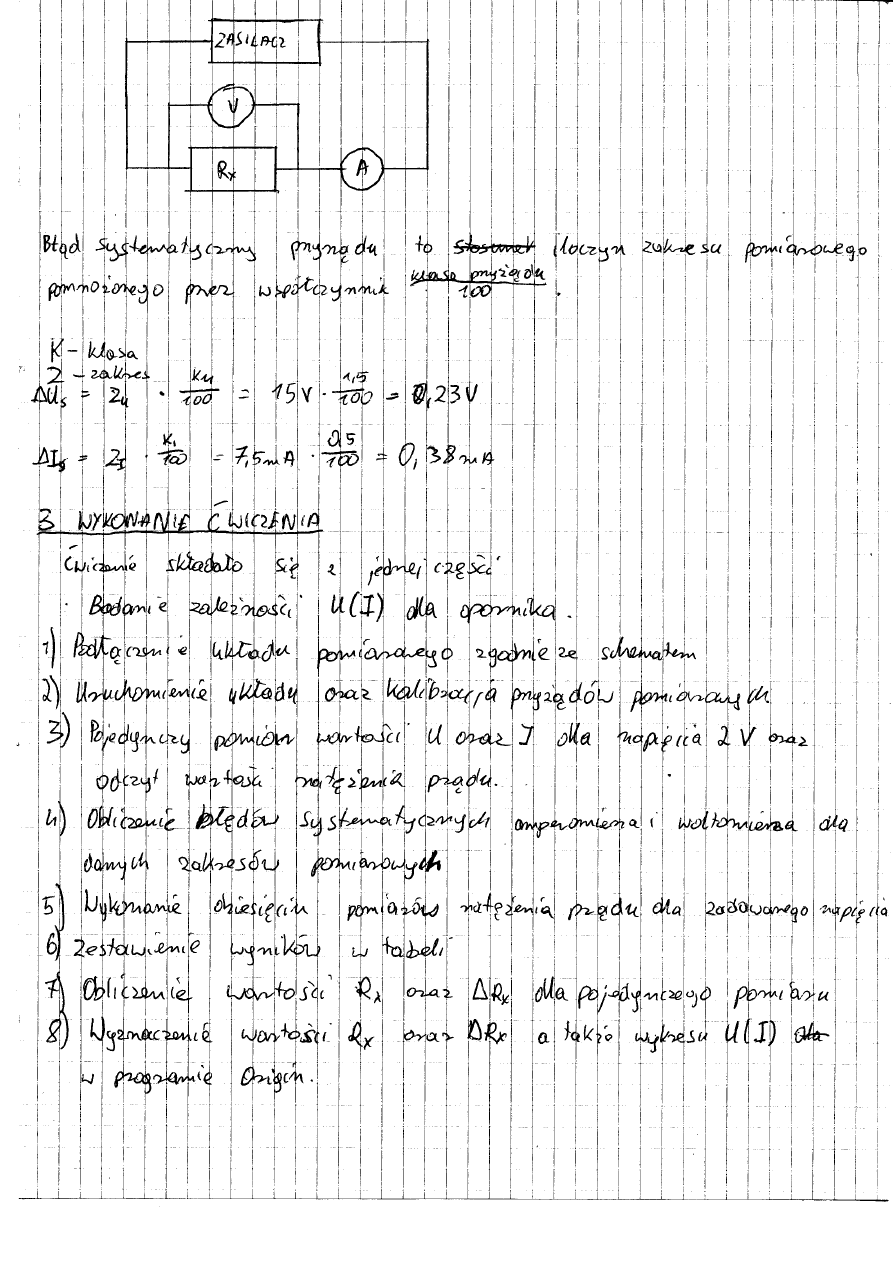 ZASILACZ
V
Rx
A
Błąd systematyczny przyrządu to stosunek iloczyn zakresu pomiarowego
pomnożonego przez współczynnik klasa przyrządu / 100 .
K - klasa
Z - zakres
ΔUs = Zu · Ku/100 = 15V · 1,5/100 = 0,23V
ΔIs = ZI · KI/100 = 7,5mA · 0,5/100 = 0,38mA
3 WYKONANIE ĆWICZENIA
Ćwiczenie składało się z jednej części
· Badanie zależności U(I) dla opornika.
1) Podłączenie układu pomiarowego zgodnie ze schematem
2) Uruchomienie układu oraz kalibracja przyrządów pomiarowych
3) Pojedynczy pomiar wartości U oraz I dla napięcia 2 V oraz
odczyt wartości natężenia prądu.
4) Obliczenie błędów systematycznych amperomierza i woltomierza dla
danych zakresów pomiarowych
5) Wykonanie dziesięciu pomiarów natężenia prądu dla zadawanego napięcia
6) Zestawienie wyników w tabeli
7) Obliczenie wartości Rx oraz ΔRx dla pojedynczego pomiaru
8) Wyznaczenie wartości Rx oraz ΔRx a także wykresu U(I) dla
w programie Origin.